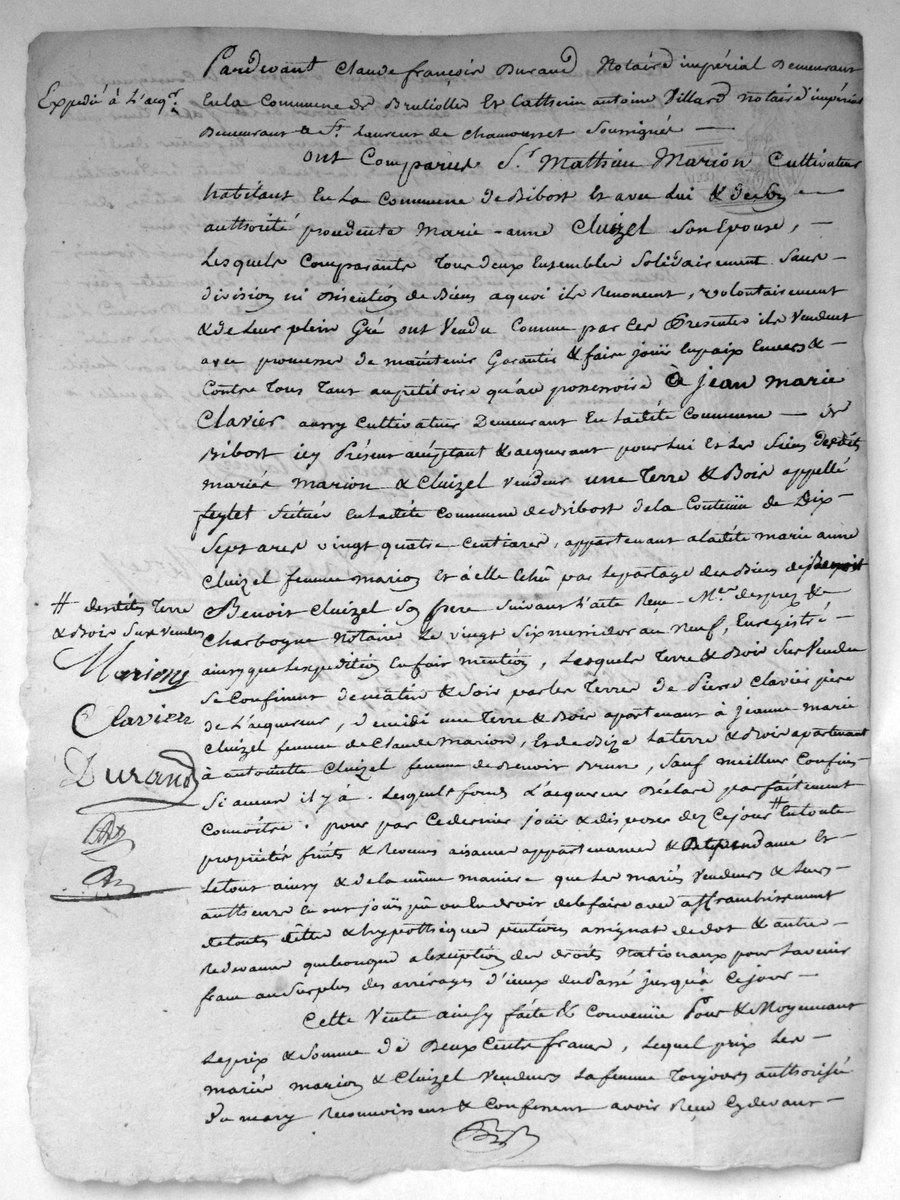 Pardevant Claude françois Durand Notaire impérial Demeurant
Expedié à L'acqr.
En la Commune de Brullolle Et Cathérin antoine Villard notaire impérial
Demeurant à St. Laurent de Chamousset Soussignés —
ont Comparus Sr. Mathieu Marion Cultivateur
habitant En La Commune de Bibost Et avec lui & de son —
authorité procédente Marie-anne Cluizel Son Epouse, —
Lesquels Comparants Tous deux Ensembles Solidairement Sans
division ni discution de Biens aquoi ils Renoncent, volontairement
& de Leur plein Gré ont Vendu Comme par Ces Presentes ils Vendent
avec promesses de maintenir Garantir & faire jouir En paix Envers &
Contre Tous Tant au pétitoire qu'au possessoire à Jean marie
Clavier aussy Cultivateur Demeurant En Ladite Commune — de
Bibost icy Présent acceptant & acquerant pour Lui Et Les Siens desdits
mariés Marion & Cluizel Vendeurs une Terre & Bois appellé
feylet Située En Ladite Commune de Bibost de la Contenüe de Dix-
Sept ares vingt quatre Centiares, appartenant à Ladite marie anne
Cluizel femme Marion Et à Elle Echu par Le partage des Biens de
Benoit Cluizel Son frere Suivant L'acte Reçu Me. despres de
Charbogne Notaire Le vingt Six messidor an Neuf, Enregistré —
ainsy que L'expedition En fait mention, Lesquels Terre & Bois Sus Vendu
Se Confinent de matin & Soir par les Terres de Pierre Clavier père
de L'acquereur, de midi une Terre & Bois apartenant à Jeanne marie
Cluizel femme de Claude Marion, Et de Bize La terre & Bois apartenant
à antoinette Cluizel femme de Benoit Brun, Sauf meilleur Confins
Si aucun il y à. Lesquels fonds L'acquereur Déclare parfaitement
Connoître. pour par Cedernier jouir & disposer dez Cejour # En toute
propriétés fruits & Revenus aisances appartenances & Dépendances Et
Le tout ainsy & de la même maniere que Les mariés Vendeurs & Leurs
autheurs En ont joui pû ou dû droit de le faire avec affranchissement
de toutes dettes & hypothèques pentions assignat de dot & autres
Redevances quelconque à L'exception des droits Nationaux pour L'avenir
franc au Surplus des arrérages d'iceux du Passé jusquà Cejour —
Cette Vente ainsy faite & Convenüe Pour & Moyennant
Le prix & Somme de Deux Cents francs, Lequel prix Les —
mariés marion & Cluizel Vendeurs La femme Toujours authorisée
Du mary Reconnoissent & Confessent avoir Reçu Cydevant —
# desdits Terre
& Bois Sus Vendus
Marion
Clavier
Durand